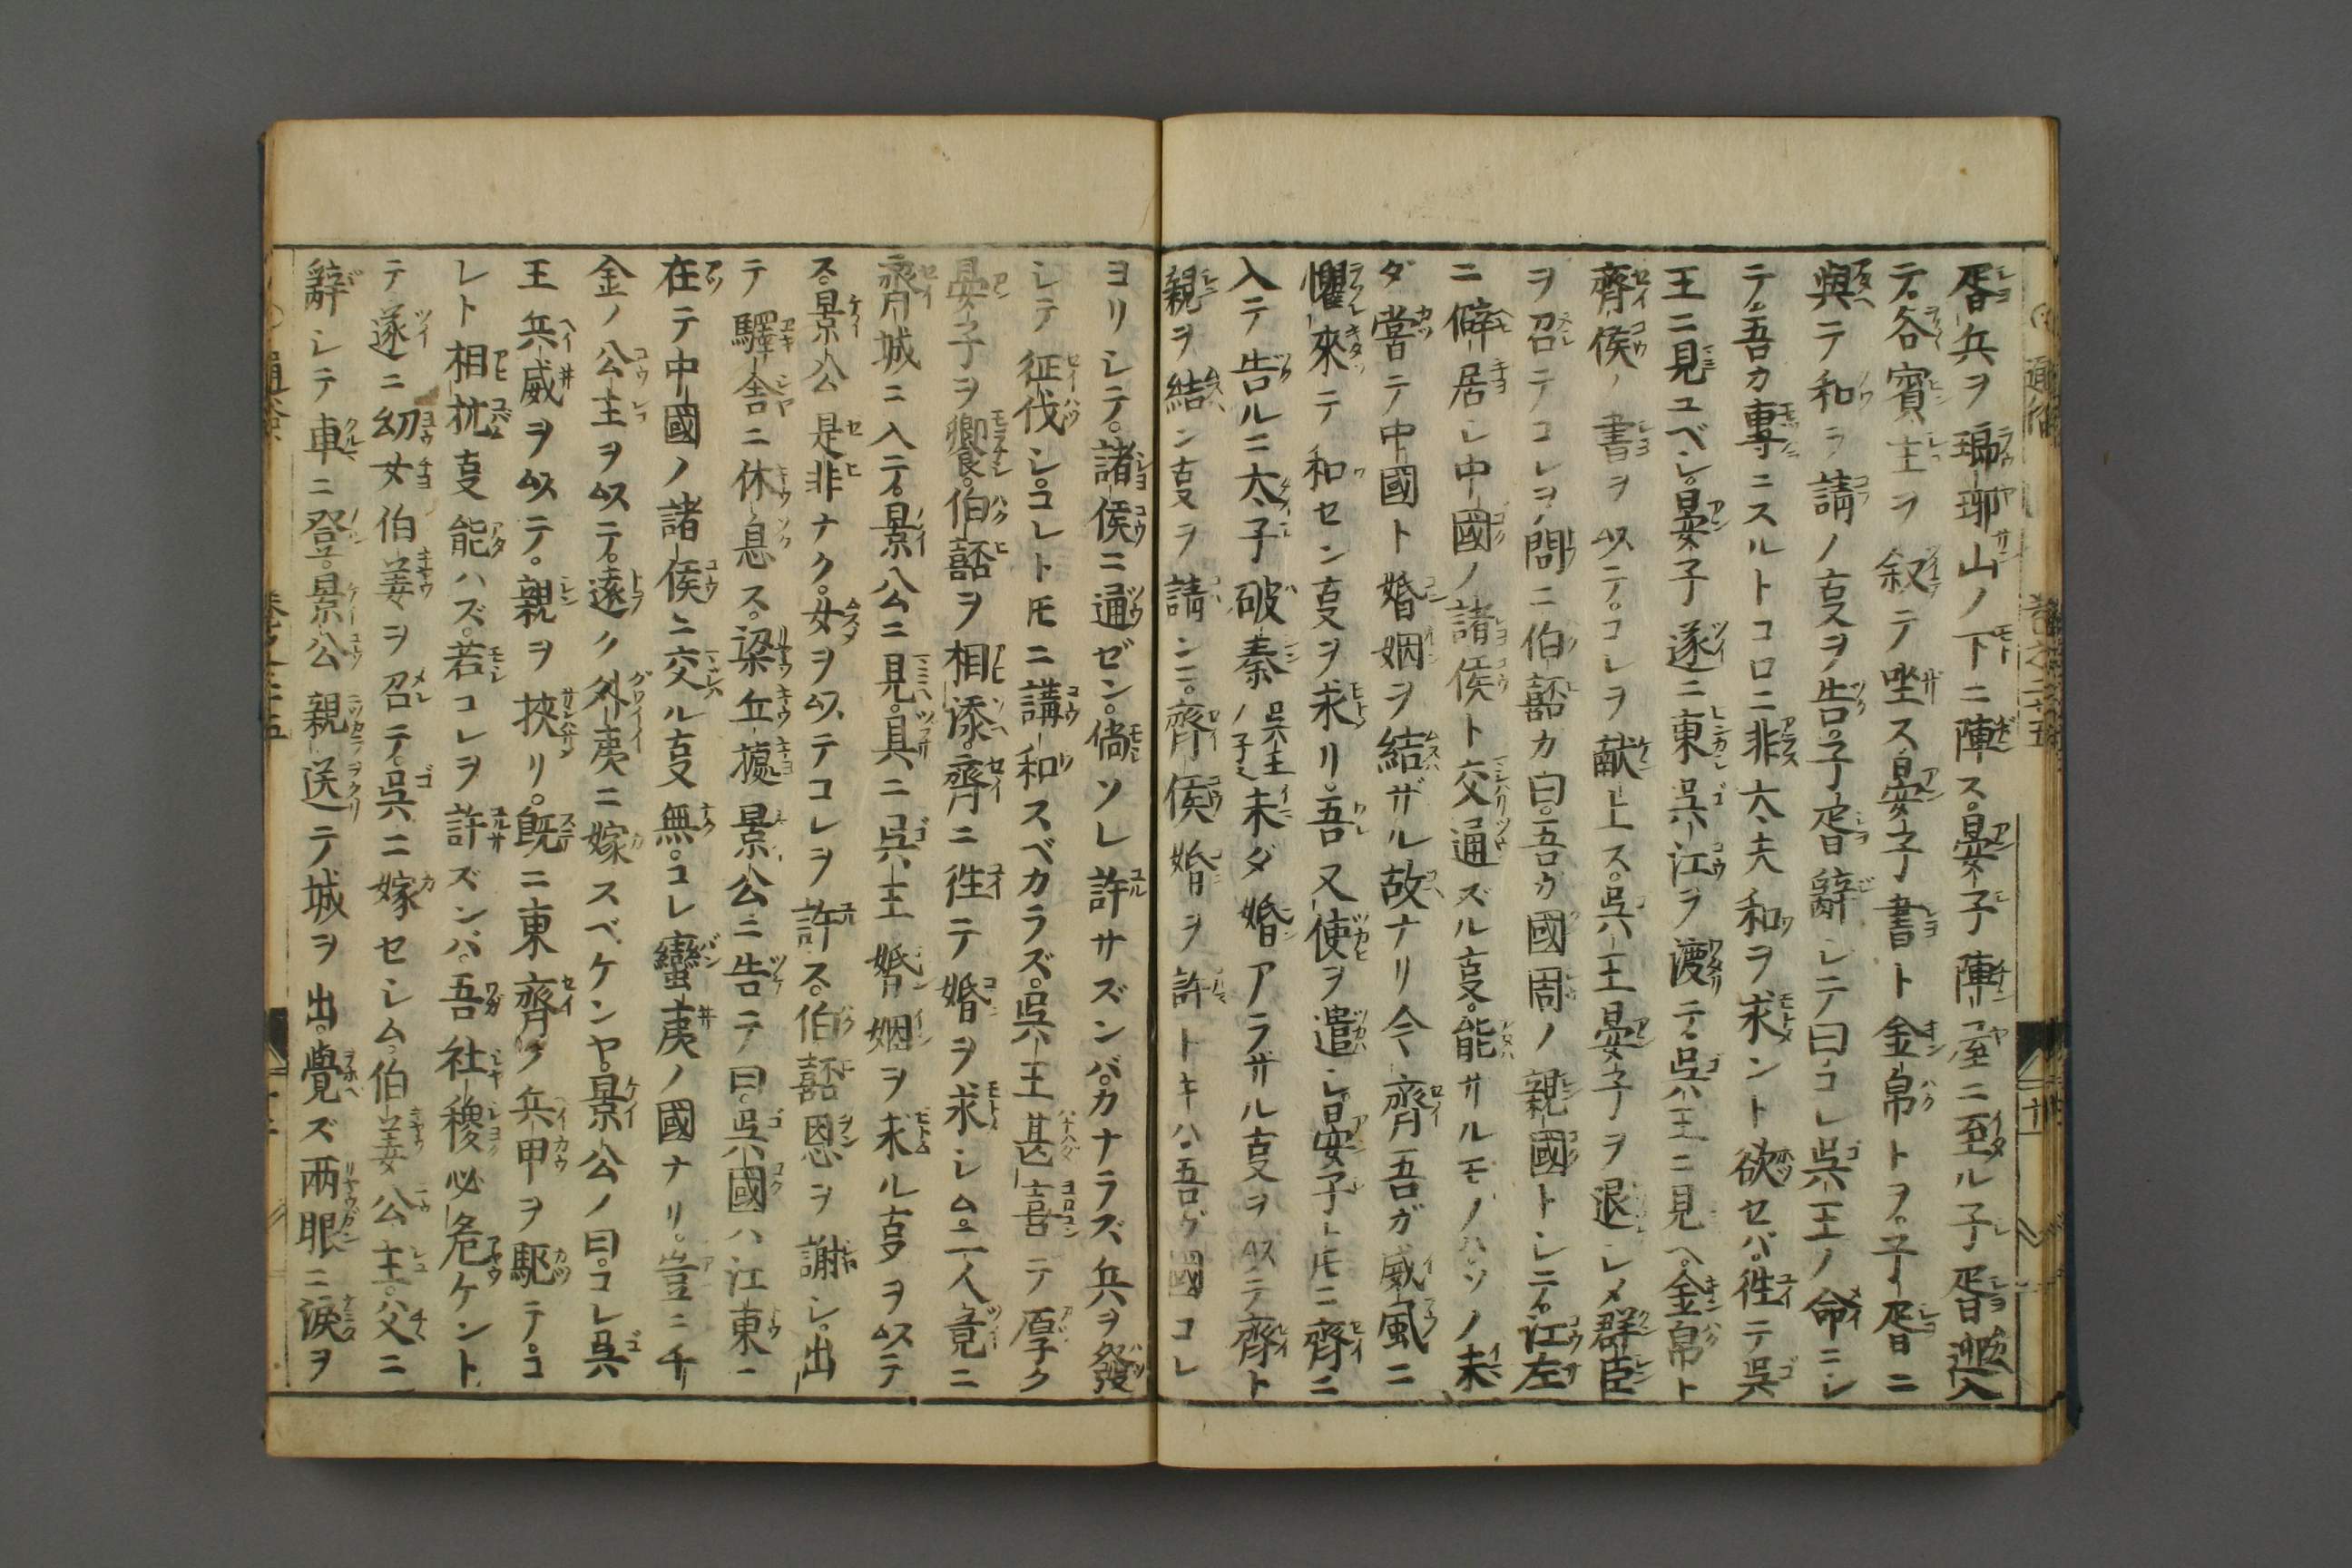 胥兵ヲ瑯琊山ノ下ニ陣ス。晏子陣屋ニ至ル子胥迎入
テ。各賓主ヲ叙テ坐ス晏子書ト金帛トヲ。子胥ニ
與テ和ヲ請ノ叓ヲ告。子胥辭レテ曰コレ呉王ノ命ニシ
テ。吾カ專ニスルトコロニ非大夫和ヲ求ント欲セバ。徃テ呉
王ニ見ユベシ。晏子遂ニ東呉江ヲ渡テ。呉王ニ見ヘ。金帛ト
齊侯ノ書ヲ以テ。コレヲ献上ス。呉王晏子ヲ退レメ群臣
ヲ召テコレヲ問ニ伯嚭カ曰。吾カ國周ノ親國トシテ。江左
ニ僻居シ中國ノ諸侯ト交通ズル叓。能サルモノハソノ未
ダ嘗テ中國ト婚姻ヲ結ザル故ナリ今齊吾ガ威風ニ
懼來テ和セン叓ヲ求リ。吾又使ヲ遣シ晏子トモニ齊ニ
入テ告ルニ太子破秦呉王ノ子未ダ婚アラザル叓ヲ以テ齊ト
親ヲ結ン叓ヲ請ンニ。齊侯婚ヲ許トキハ吾ガ國コレ
ヨリシテ。諸侯ニ通ゼン。倘ソレ許サズンバ。カナラズ兵ヲ發
シテ征伐シ。コレトモニ講和スベカラズ。呉王甚喜テ厚ク
晏子ヲ饗。伯嚭ヲ相添。齊ニ徃テ婚ヲ求シム。二人竟ニ
齊城ニ入テ。景公ニ見。具ニ呉王婚姻ヲ求ル叓ヲ以テ
ス。景公是非ナク。女ヲ以テコレヲ許ス。伯嚭恩ヲ謝シ。出
テ驛舎ニ休息ス。梁丘據景公ニ告テ曰。呉國ハ江東ニ
在テ中國ノ諸侯ニ交ル叓無。コレ蠻夷ノ國ナリ。豈ニ千
金ノ公主ヲ以テ。遠ク外夷ニ嫁スベケンヤ。景公ノ曰。コレ呉
王兵威ヲ以テ。親ヲ挾リ。既ニ東齊ク兵甲ヲ駆テ。コ
レト相抗叓能ハズ。若コレヲ許ズンバ。吾社稷必危ケント
テ遂ニ幼女伯姜ヲ召テ。呉ニ嫁セシム。伯姜公主。父ニ
辭シテ車ニ登。景公親送テ城ヲ出。覺ズ兩眼ニ淚ヲ